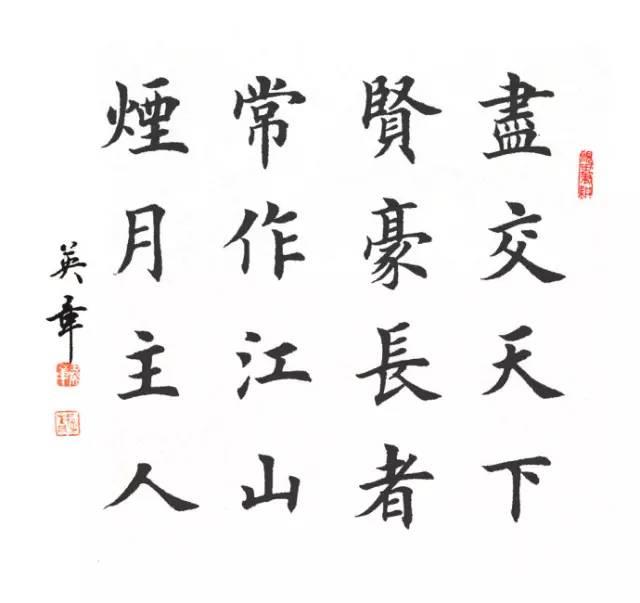 盡交天下
賢豪長者
常作江山
煙月主人
英章